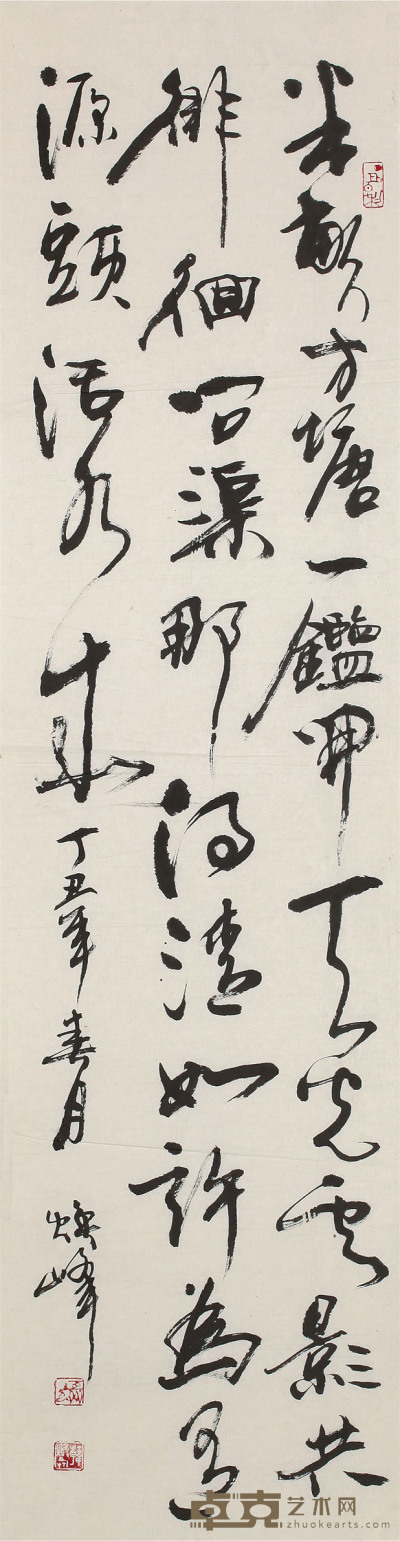 半畝方塘一鑑開天光雲影共
徘徊問渠那得清如許為有
源頭活水來 丁丑年春月 焕峰
卓克艺术网
zhuokearts.com